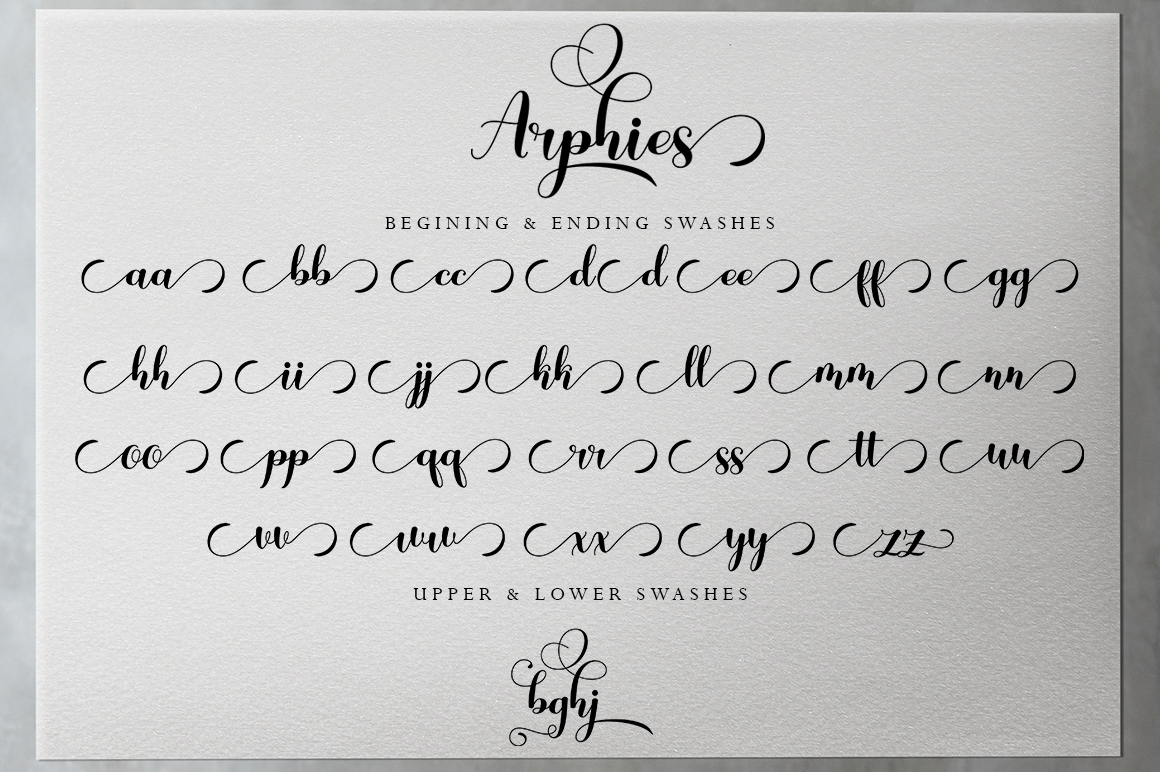 Arphies
BEGINING & ENDING SWASHES
aa bb cc dd ee ff gg
hh ii jj kk ll mm nn
oo pp qq rr ss tt uu
vv ww xx yy zz
UPPER & LOWER SWASHES
bghj